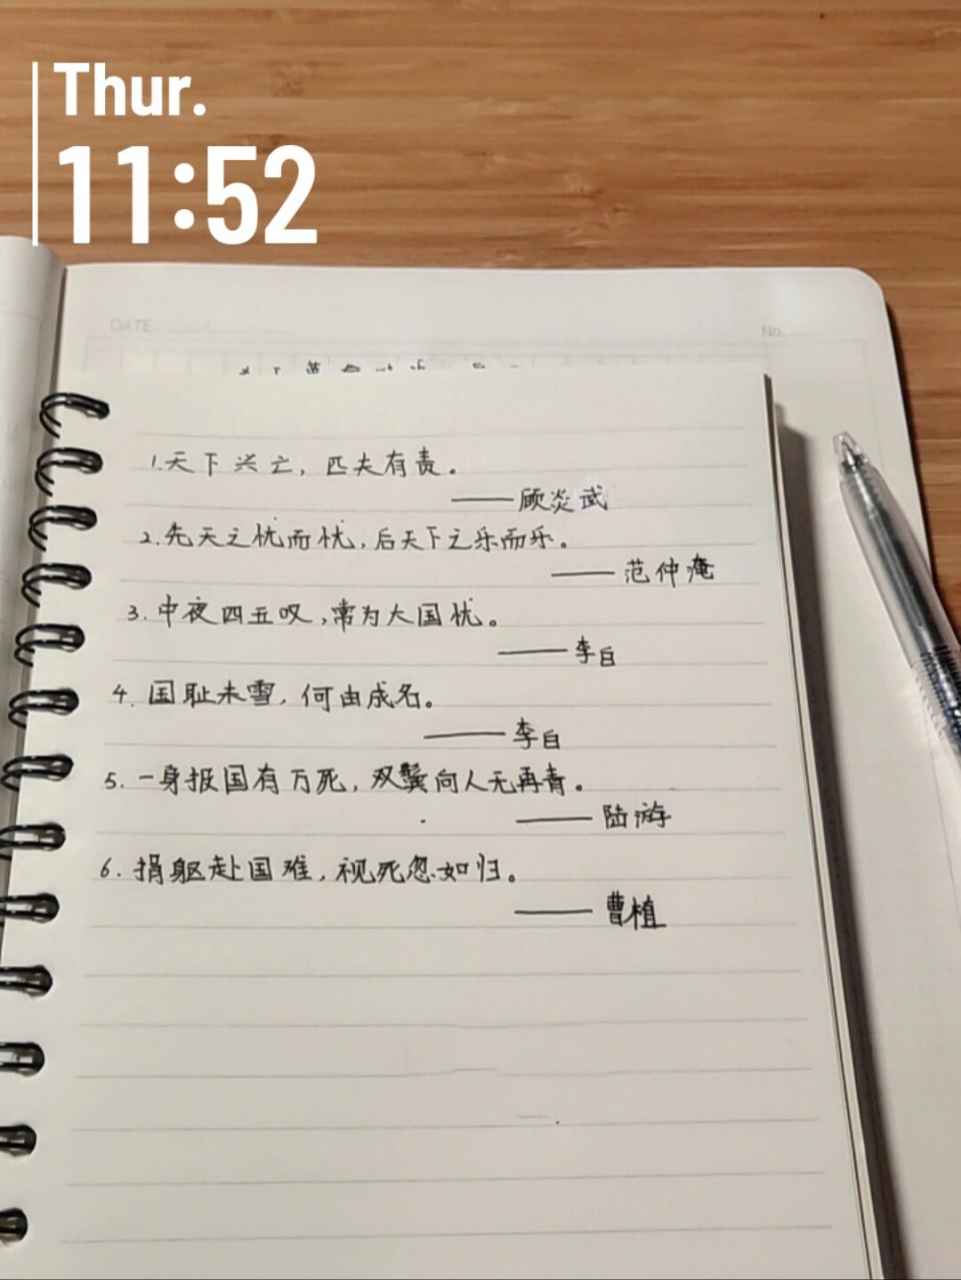 Thur.
11:52
DATE
No.
1.天下兴亡，匹夫有责。
——顾炎武
2.先天之忧而忧，后天下之乐而乐。
——范仲淹
3.中夜四五叹，常为大国忧。
——李白
4.国耻未雪，何由成名。
——李白
5.一身报国有万死，双鬓向人无再青。
——陆游
6.捐躯赴国难，视死忽如归。
——曹植